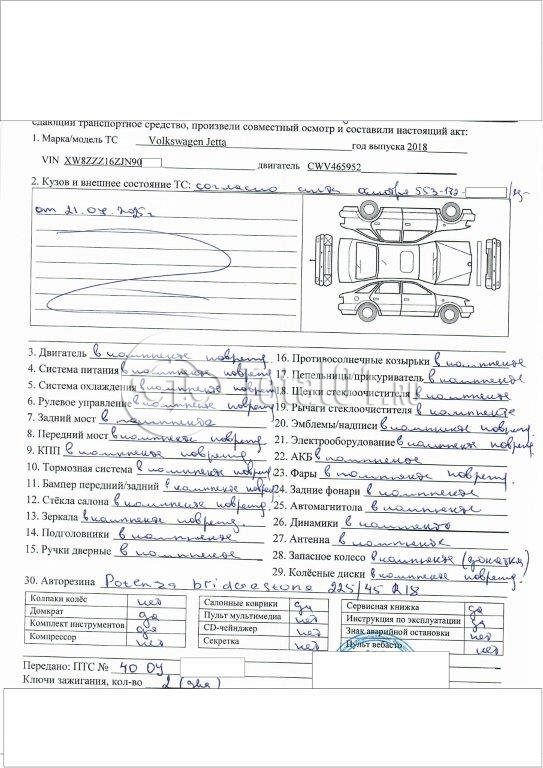 сдающий транспортное средство, произвели совместный осмотр и составили настоящий акт:
1. Марка/модель ТС Volkswagen Jetta год выпуска 2018
VIN XW8ZZZ16ZJN90 двигатель CWV465952
2. Кузов и внешнее состояние ТС: согласно акта осмотра 553-172-
от 21.04.
3. Двигатель в комплекте поврежд.
16. Противосолнечные козырьки в комплекте
4. Система питания в комплекте поврежд.
17. Пепельницы/прикуриватель в комплекте
5. Система охлаждения в комплекте поврежд
18. Щетки стеклоочистителя в комплекте
6. Рулевое управление в комплекте поврежд
19. Рычаги стеклоочистителя в комплекте
7. Задний мост в комплекте
20. Эмблемы/надписи в комплекте поврежд.
8. Передний мост в комплекте поврежд
21. Электрооборудование в комплекте поврежд
9. КПП в комплекте поврежд.
22. АКБ в комплекте
10. Тормозная система в комплекте поврежд
23. Фары в комплекте поврежд.
11. Бампер передний/задний в комплекте поврежд
24. Задние фонари в комплекте
12. Стёкла салона в комплекте поврежд
25. Автомагнитола в комплекте
13. Зеркала в комплекте поврежд.
26. Динамики в комплекте
14. Подголовники в комплекте
27. Антенна в комплекте
15. Ручки дверные в комплекте
28. Запасное колесо в комплекте (докатка)
29. Колёсные диски в комплекте поврежд.
30. Авторезина Potenza bridgestone 225/45 R18
Колпаки колёс нет Салонные коврики да Сервисная книжка да
Домкрат да Пульт мультимедиа нет Инструкция по эксплуатации да
Комплект инструментов да CD-чейнджер нет Знак аварийной остановки нет
Компрессор нет Секретка нет Пульт вебасто нет
Передано: ПТС № 40 ОУ
Ключи зажигания, кол-во 2 (два)